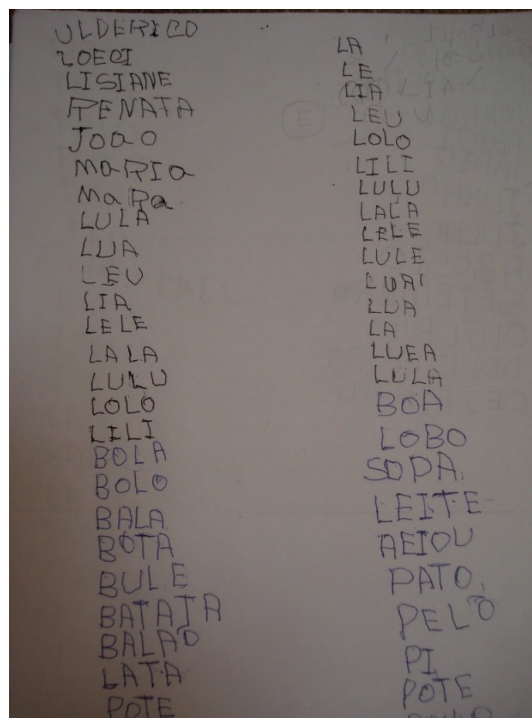 ULDERICO
LISIANE
RENATA
JOAO
MARIA
MARA
LULA
LUA
LEU
LIA
LELE
LALA
LULU
LOLO
LILI
BOLA
BOLO
BALA
BOTA
BULE
BATATA
BALAO
LATA
POTE
LA
LE
LIA
LEU
LOLO
LILI
LULU
LALA
LELE
LULE
LUAI
LUA
LA
LUEA
LULA
BOA
LOBO
SOPA
LEITE
AEIOU
PATO
PELO
PI
POTE